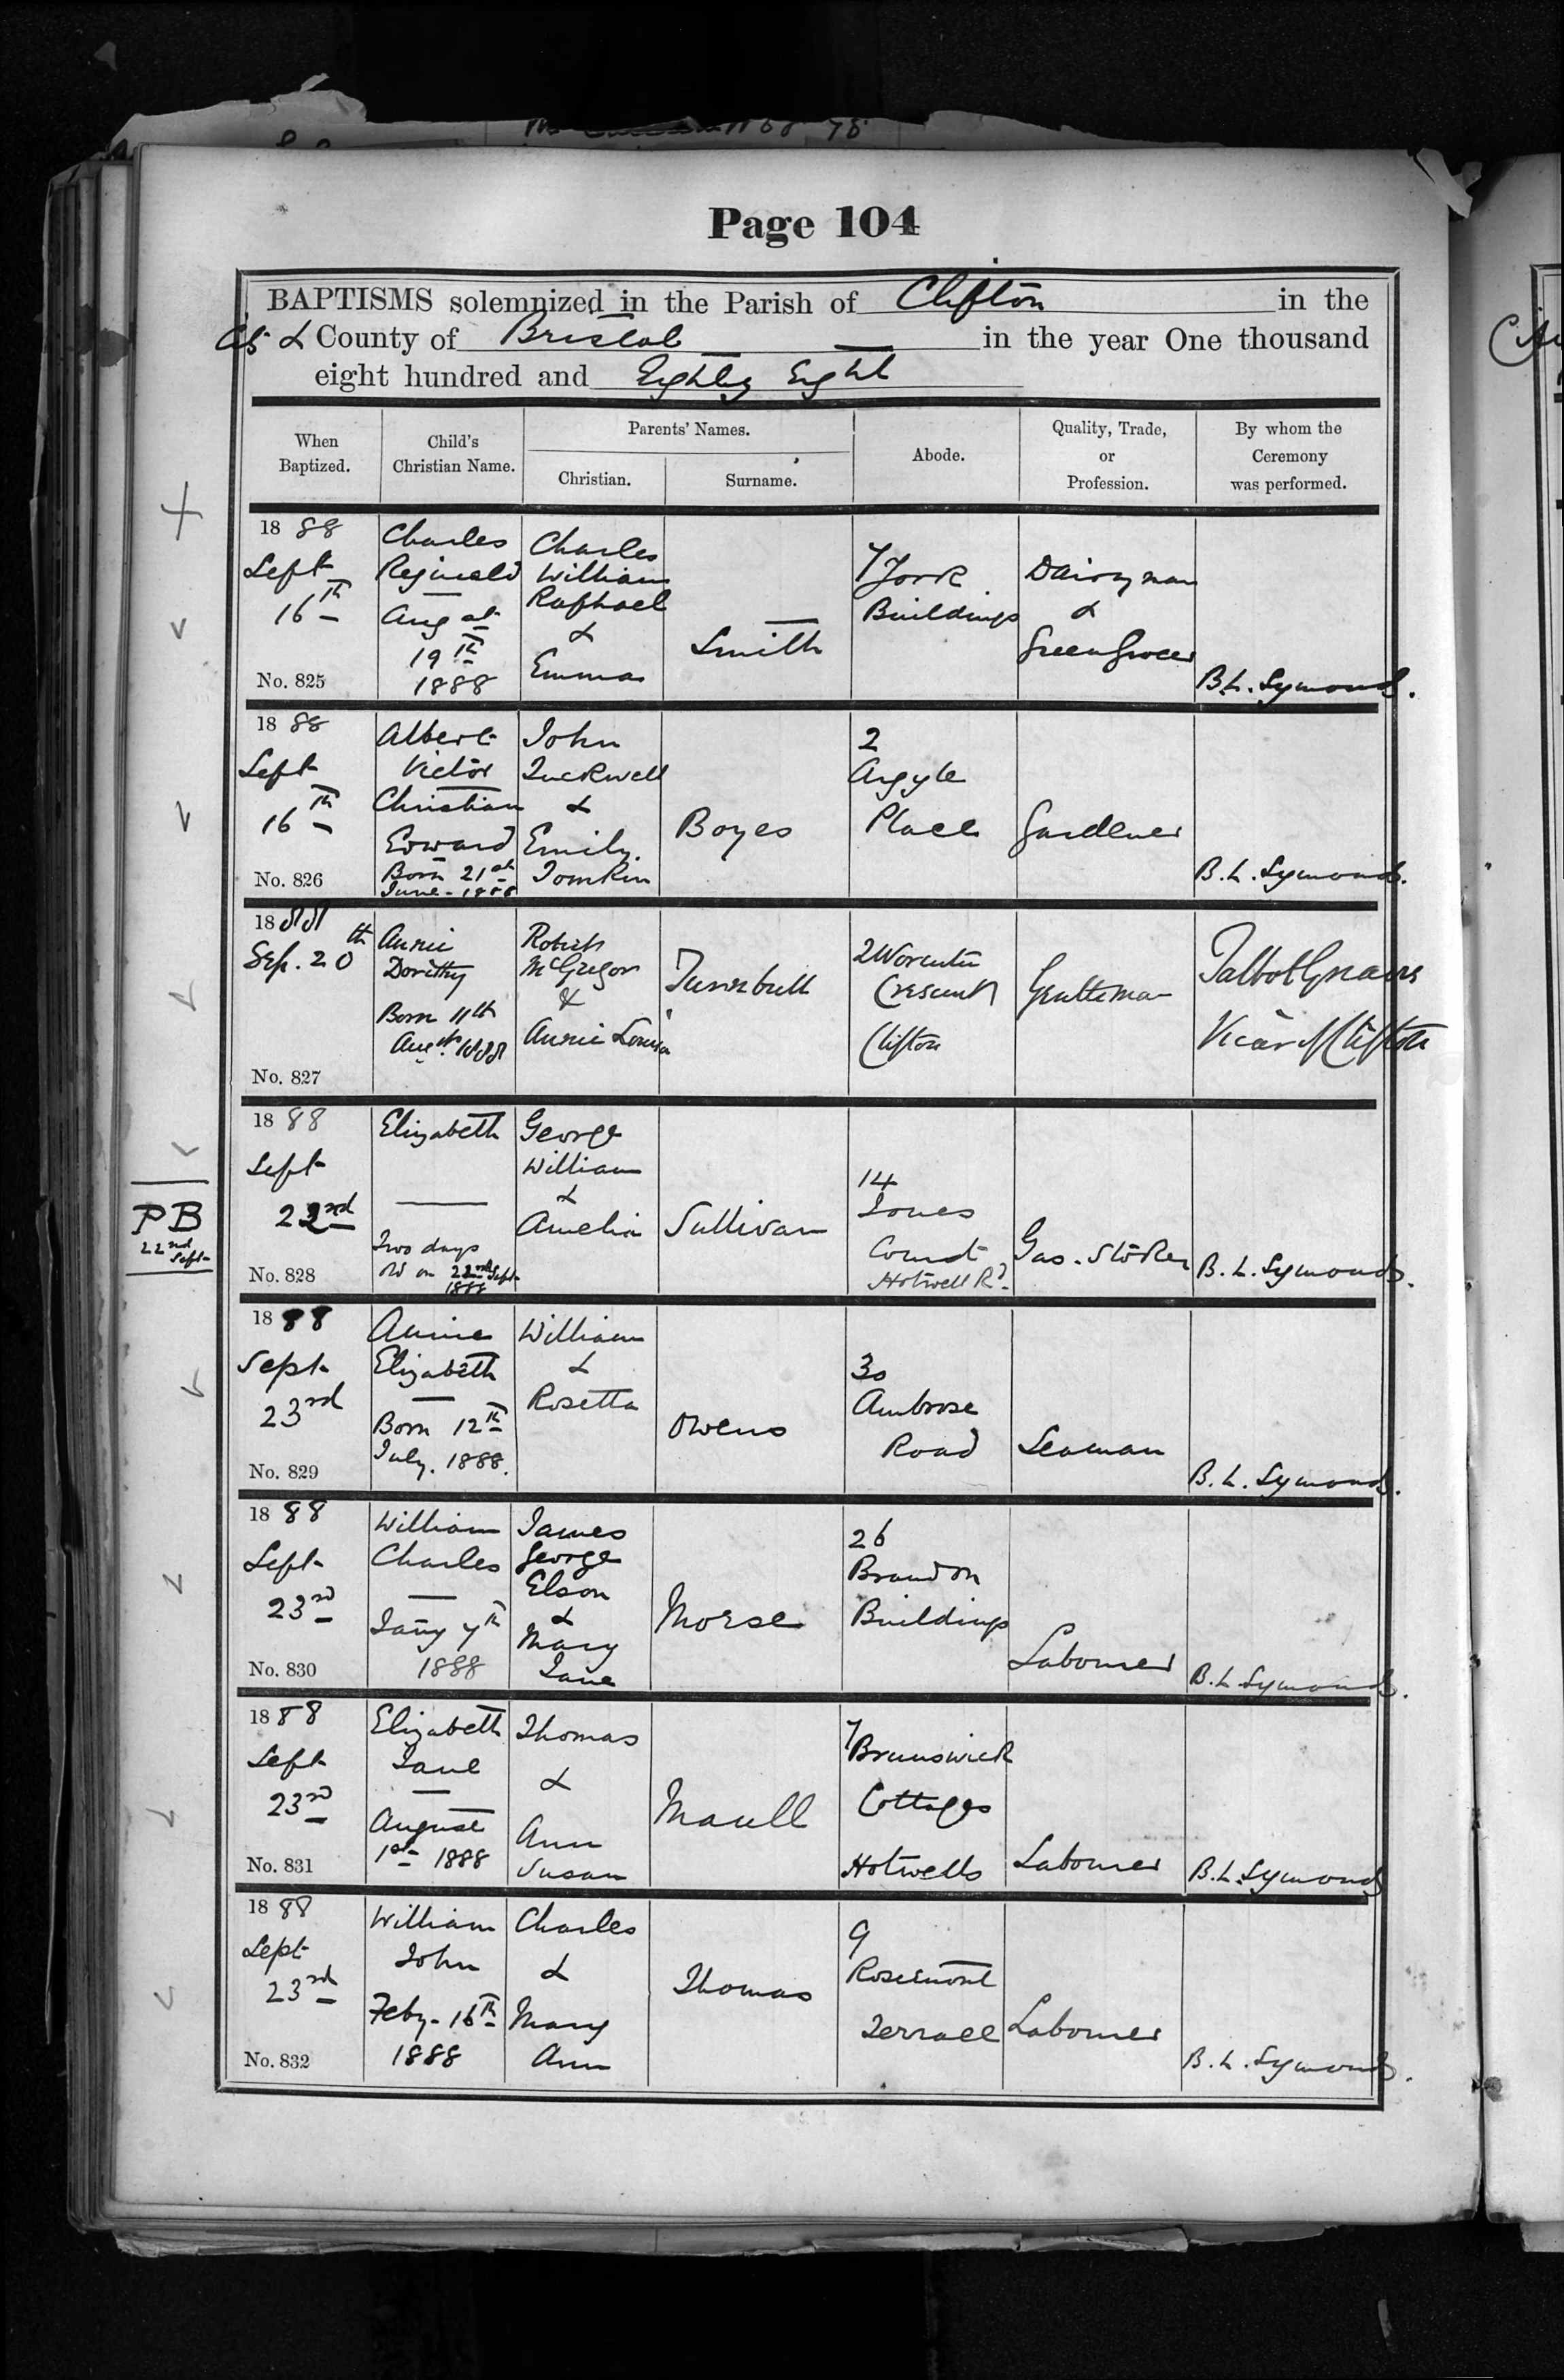 Page 104
BAPTISMS solemnized in the Parish of Clifton in the
& County of Bristol in the year One thousand
eight hundred and Eighty Eight
When
Baptized.
Child's
Christian Name.
Parents' Names.
Christian.
Surname.
Abode.
Quality, Trade,
or
Profession.
By whom the
Ceremony
was performed.
1888
Sept
16th
No. 825
Charles
Reginald
19th
1888
Charles
William
Raphael
&
Emma
Smith
7 York
Buildings
Dairyman
&
GreenGrocer
B.L. Symonds.
1888
Sept
16th
No. 826
Albert
Victor
Christian
Edward
Born 21st
June - 1888
John
Tuckwell
&
Emily
Tomkin
Boyes
2
Argyle
Place
Gardener
B. L. Symonds.
1888
Sep. 20th
No. 827
Annie
Dorothy
Born 11th
Augt. 1888
Robert
McGregor
&
Annie Louisa
Turnbull
2 Worcester
Crescent
Clifton
Gentleman
Talbot Greaves
Vicar of Clifton
1888
Sept
22nd
No. 828
Elizabeth
Two days
old on 22nd Sept
1888
George
William
&
Amelia
Sullivan
14
Jones
Court
Hotwell Rd.
Gas. Stoker
B. L. Symonds.
PB
22nd
Sept
1888
Sept
23rd
No. 829
Annie
Elizabeth
Born 12th
July. 1888.
William
&
Rosetta
Owens
30
Ambrose
Road
Seaman
B. L. Symonds.
1888
Sept
23rd
No. 830
William
Charles
Jany 7th
1888
James
George
Elson
&
Mary
Jane
Morse
26
Brandon
Buildings
Labourer
B. L. Symonds.
1888
Sept
23rd
No. 831
Elizabeth
Jane
August
1st 1888
Thomas
&
Ann
Susan
Maull
7
Brunswick
Cottages
Hotwells
Labourer
B. L. Symonds
1888
Sept
23rd
No. 832
William
John
Feby. 16th
1888
Charles
&
Mary
Ann
Thomas
9
Rosemont
Terrace
Labourer
B. L. Symonds.